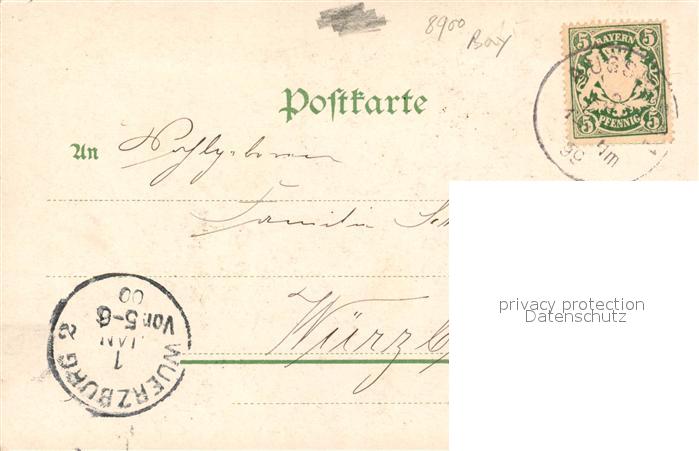 8900
Bay
5 BAYERN 5
5 PFENNIG 5
Postkarte
An Wohlgeboren
Familie
Würzb
WUERZBURG 2
1
JAN
Vor. 5-6
00
privacy protection
Datenschutz